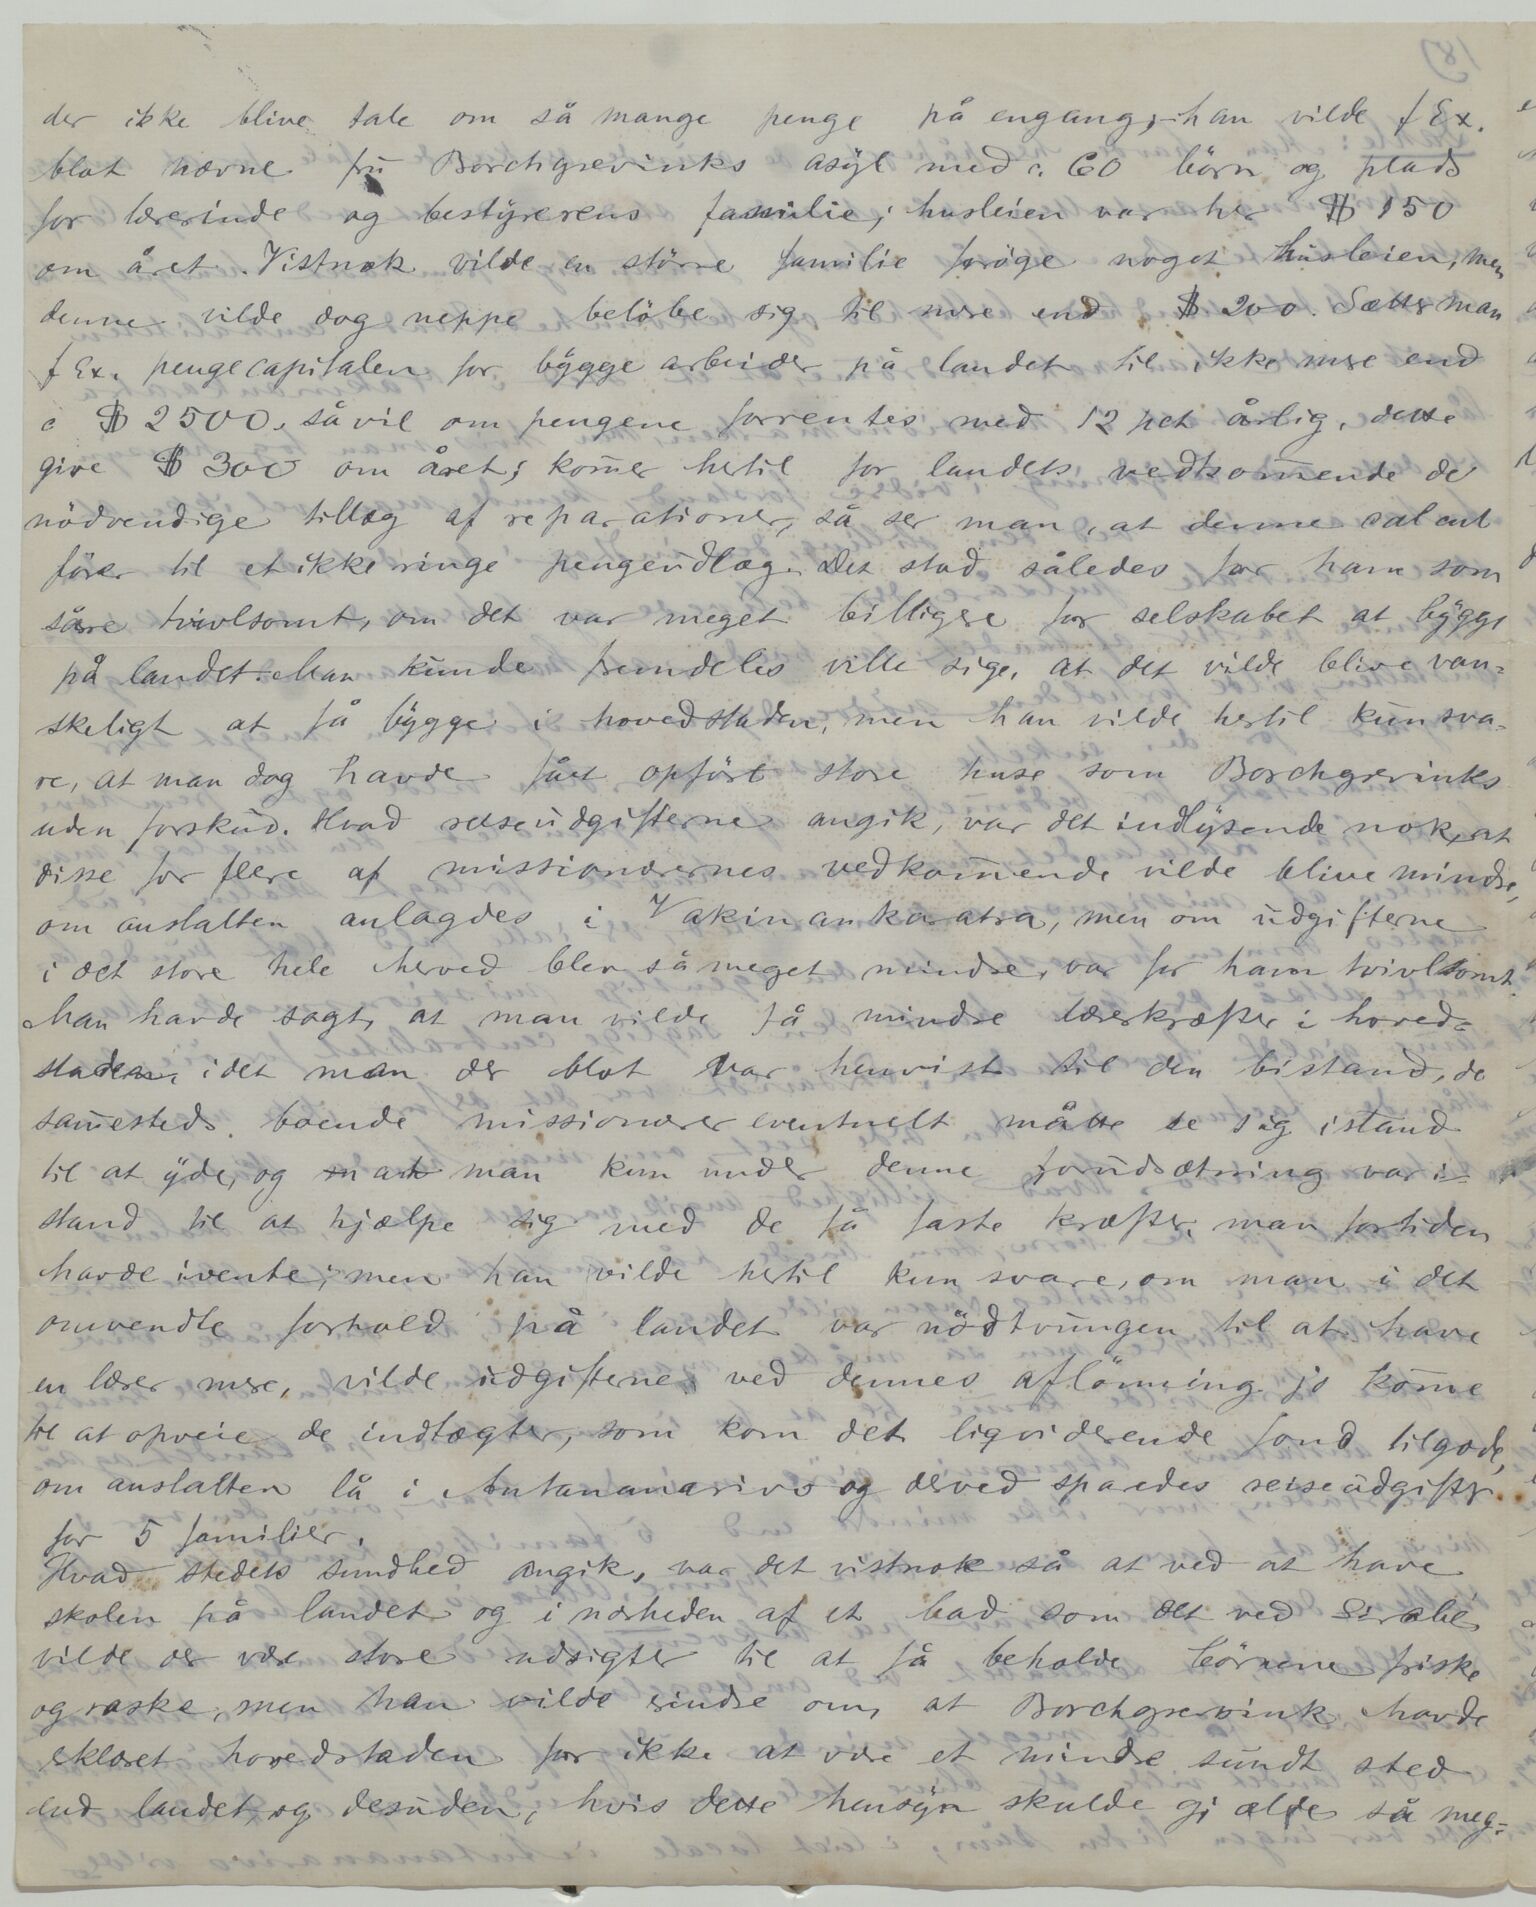 der ikke blive tale om så mange penge på engang, han vilde f Ex.
blot nævne fru Borchgrevinks asyl med c. 60 börn og plads
for lærerinde og bestyrerens familie; husleien var her $ 150
om året. Vistnok vilde en större familie foröge noget husleien, men
denne vilde dog neppe belöbe sig til mere end $ 200. Sætter man
f Ex. pengecapitalen for byggearbeider på landet til ikke mere end
c $ 2500, så vil om pengene forrentes med 12 pct årlig, dette
give $ 300 om året; kom̅er hertil for landets vedkom̅ende de
nödvendige tillæg af reparationer, så ser man, at denne calcul
förer til et ikke ringe pengeudlæg. Det stod således for ham som
såre tvivlsomt, om det var meget billigere for selskabet at bygge
på landet. Man kunde fremdeles ville sige, at det vilde blive van=
skeligt at få bygge i hovedstaden, men han vilde hertil kun sva=
re, at man dog havde fået opfört store huse som Borchgrevinks
uden forskud. Hvad reiseudgifterne angik, var det indlysende nok, at
disse for flere af missionærernes vedkom̅ende vilde blive mindre,
om anstalten anlagdes i Vakinankaratra, men om udgifterne
i det store hele herved blev så meget mindre, var for ham tvivlsomt.
Man havde sagt, at man vilde få mindre lærerkræfter i hoved=
staden, idet man der blot var henvist til den bistand, de
sam̅esteds boende missionærer eventuelt måtte se sig istand
til at yde, og at man kun under denne forudsætning var i
stand til at hjælpe sig med de få faste kræfter, man fortiden
havde ivente; men han vilde hertil kun svare, om man i det
omvendte forhold på landet var nödtvungen til at have
en lærer mere, vilde udgifterne ved dennes aflönning jo kom̅e
til at opveie de indtægter, som kom det ligviderende fond tilgode,
om anstalten lå i Antananarivo og derved sparedes reiseudgifter
for 5 familier.
Hvad stedets sundhed angik, var det vistnok så at ved at have
skolen på landet og i nærheden af et bad som det ved Sirabe,
vilde der være store udsigter til at få beholde börnene friske
og raske, men han vilde erindre om, at Borchgrevink havde
erklæret hovedstaden for ikke at være et mindre sundt sted
end landet, og desuden, hvis dette hensyn skulde gjælde så meg=